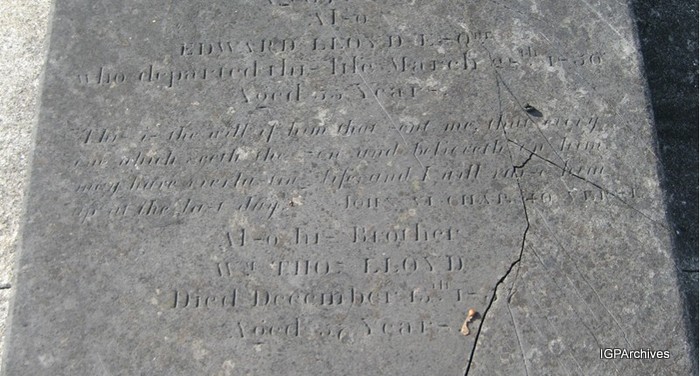 Also
EDWARD LLOYD ESQre
who departed this life March
Aged Years
This is the will of him that sent me, that every
one which seeth the Son and believeth on him
may have everlasting life, and I will raise him
up at the last day. JOHN VI CHAP. 40 VERSE
Also his Brother
Wm THOs LLOYD
Died December 15th
Aged Years
IGPArchives